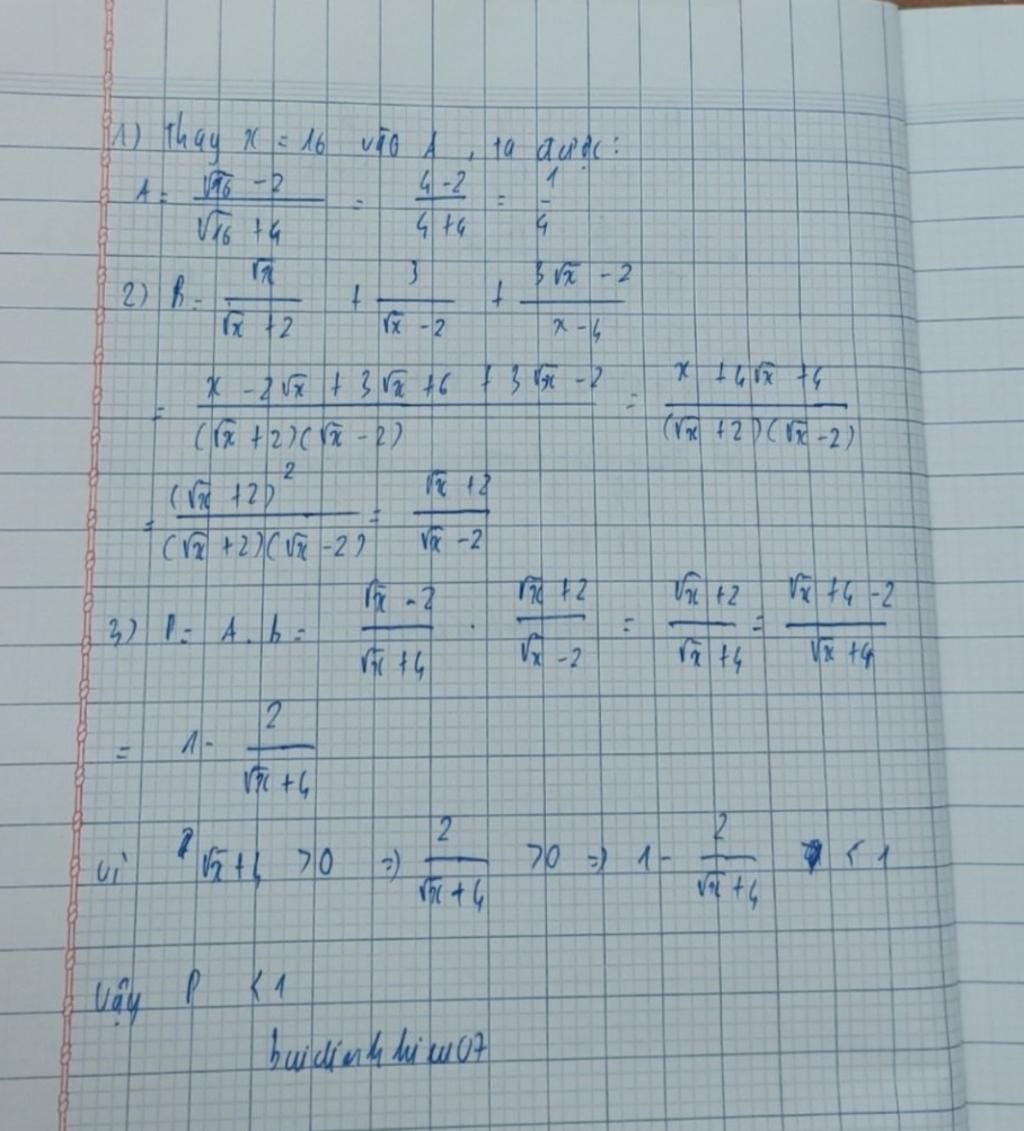 1) Thay x = 16 vào A, ta được:
A = (√16 - 2)/(√16 + 4) = (4 - 2)/(4 + 4) = 1/4
2) B = √x/(√x + 2) + 3/(√x - 2) + (3√x - 2)/(x - 4)
= (x - 2√x + 3√x + 6 + 3√x - 2)/((√x + 2)(√x - 2)) = (x + 4√x + 4)/((√x + 2)(√x - 2))
= (√x + 2)²/((√x + 2)(√x - 2)) = (√x + 2)/(√x - 2)
3) P = A . B = (√x - 2)/(√x + 4) . (√x + 2)/(√x - 2) = (√x + 2)/(√x + 4) = (√x + 4 - 2)/(√x + 4)
= 1 - 2/(√x + 4)
Vì √x + 4 > 0 => 2/(√x + 4) > 0 => 1 - 2/(√x + 4) < 1
Vậy P < 1